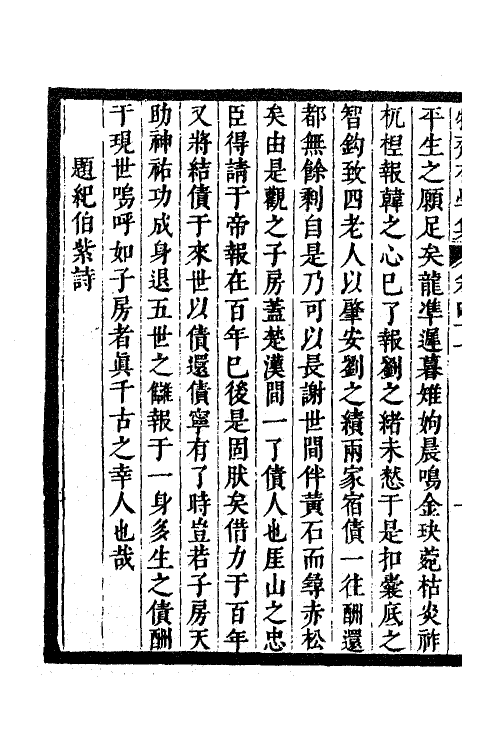 平生之願足矣龍準遲暮雉姁晨鳴金玦菀枯炎祚
杌桯報韓之心已了報劉之緒未愁于是扣囊底之
智鈎致四老人以肇安劉之績兩家宿債一往酬還
都無餘剩自是乃可以長謝世間伴黃石而尋赤松
矣由是觀之子房蓋楚漢間一了債人也厓山之忠
臣得請于帝報在百年已後是固肰矣借力于百年
又將結債于來世以債還債寧有了時豈若子房天
助神祐功成身退五世之讎報于一身多生之債酬
于現世嗚呼如子房者眞千古之幸人也哉
題紀伯紫詩